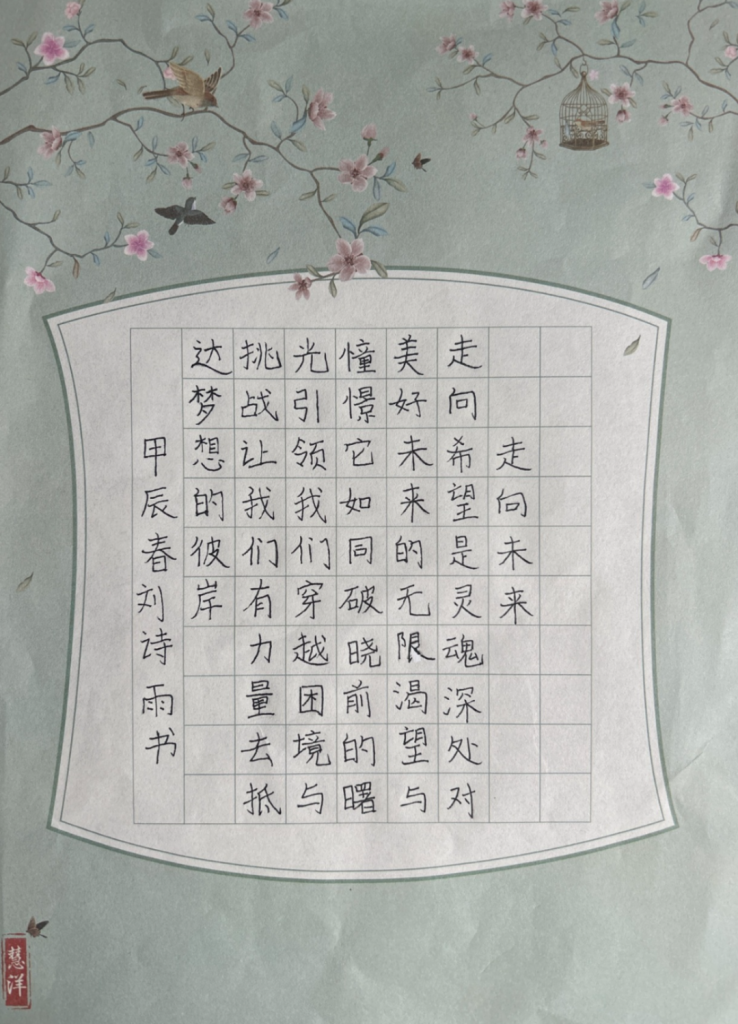 走向未来
走向希望是灵魂深处对
美好未来的无限渴望与
憧憬它如同破晓前的曙
光引领我们穿越困境与
挑战让我们有力量去抵
达梦想的彼岸
甲辰春刘诗雨书
慧洋